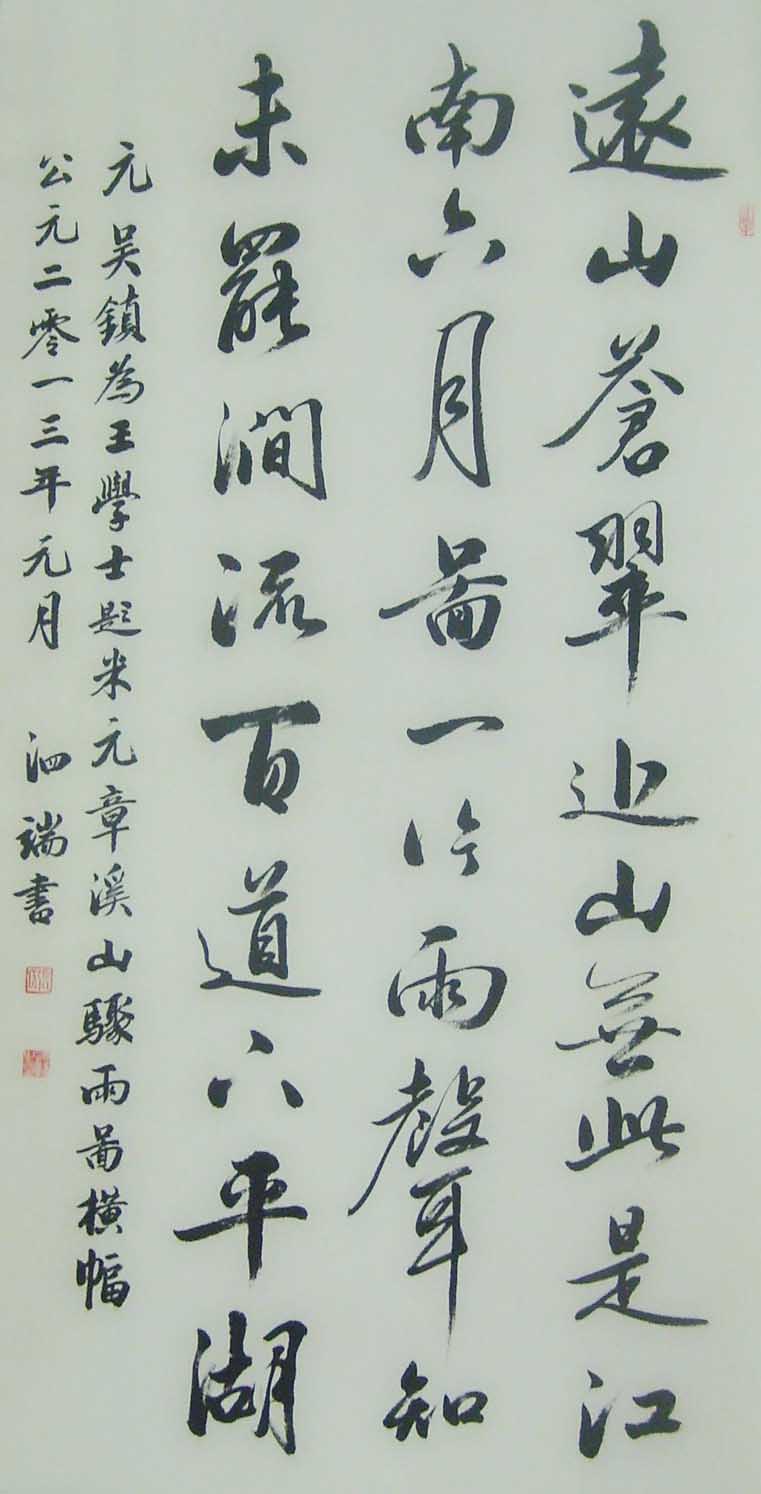 遠山蒼翠近山無此是江
南六月啚一片雨聲知
未罷澗流百道下平湖
元吴鎮為王學士題米元章溪山驟雨啚横幅
公元二零一三年元月 泗端書